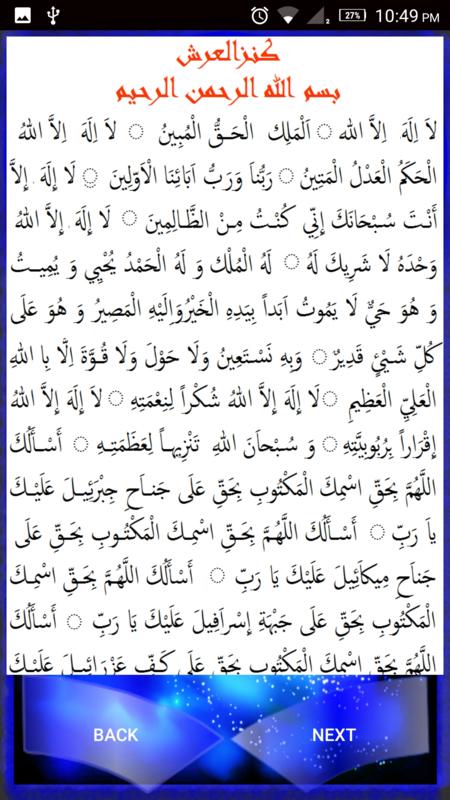 27% 10:49 PM
كنزالعرش
بسم الله الرحمن الرحيم
لاَ اِلَهَ اِلاَّ الله ◌ اَلْمَلِك الْحَـقُّ الْمُبِينُ ◌ لاَ اِلَهَ اِلاَّ اللهُ
الْحَكَمُ الْعَدْلُ الْمَتِينُ ◌ رَبُّنَا وَرَبُّ اَبَائِنَا الْاَوَّلِينَ ◌ لَا إِلَهَ إِلاَّ
أَنْتَ سُبْحَانَكَ إِنِّي كُنْتُ مِـنْ الظَّـالِمِينَ ◌ لَا إِلَهَ إِلاَّ اللهُ
وَحْدَهُ لَا شَرِيكَ لَهُ ◌ لَهُ الْمُلْك وَ لَهُ الْحَمْدُ يُحْيِي وَ يُمِيـتُ
وَ هُوَ حَيٌّ لَا يَمُوتُ اَبَداً بِيَدِهِ الْخَيْرُوَاِلَيْهِ الْمَصِيرُ وَ هُوَ عَلَى
كُلِّ شَيْئٍ قَدِيرٌ ◌ وَبِهِ نَسْتَعِينُ وَلَا حَوْلَ وَلَا قُـوَّةَ اِلَّا بِا للهِ
الْعَلِيِّ الْعَظِيمِ ◌ لَا إِلَهَ إِلاَّ اللهُ شُكْراً لِنِعْمَتِهِ ◌ لاَ إِلَهَ إِلاَّ اللهُ
إِقْرَاراً بِرُبُوبِيَّتِهِ ◌ وَ سُبْحاَنَ اللهِ تَنْزِيهـاً لِعَظَمَتِـهِ ◌ أَسْـأَلُكَ
اللَّهُمَّ بِحَقِّ اسْمِكَ الْمَكْتُوبِ بِحَقِّ عَلَى جَنـاَحِ جِبْرَئِيـلَ عَلَيْـكَ
ياَ رَبِّ ◌ أَسْـأَلُكَ اللَّهُمَّ بِحَقِّ اسْمِـكَ الْمَكْتُـوبِ بِحَـقِّ عَلَى
جَناَحِ مِيكاَئِيلَ عَلَيْكَ يَا رَبِّ ◌ أَسْأَلُكَ اللَّهُمَّ بِحَـقِّ اسْمِـكَ
الْمَكْتُوبِ بِحَقِّ عَلَى جَبْهَةِ إِسْرَافِيلَ عَلَيْكَ يَا رَبِّ ◌ أَسْـأَلُكَ
اللَّهُمَّ بِحَقِّ اسْمِكَ الْمَكْتُوبِ بِحَقِّ عَلَى كَـفِّ عَزْرَائِيـلَ عَلَيْـكَ
BACK NEXT